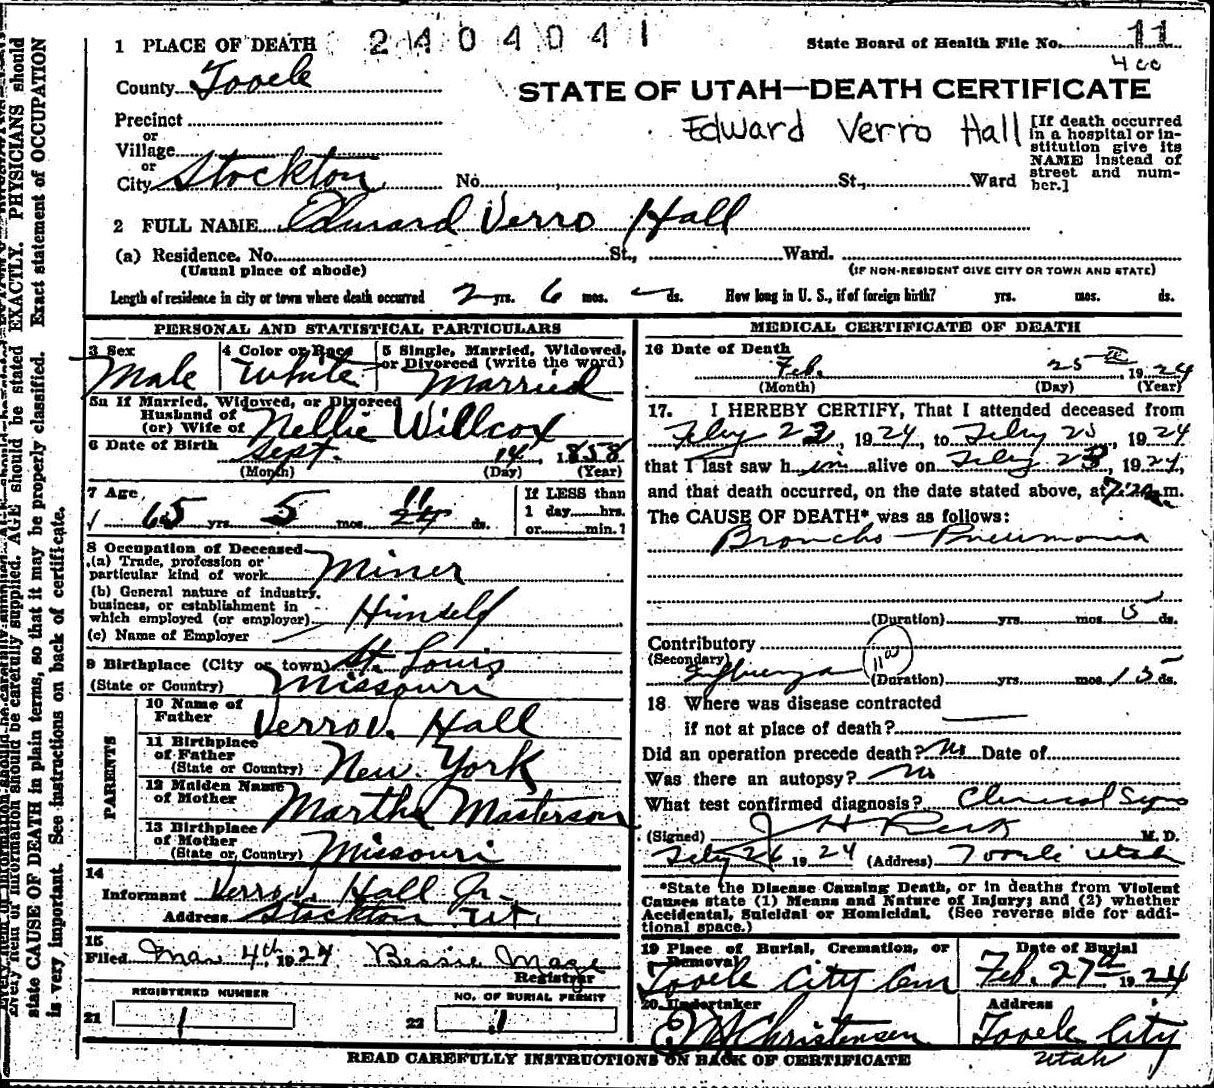 1 PLACE OF DEATH 2404041 State Board of Health File No. 11
400
County Tooele
STATE OF UTAH—DEATH CERTIFICATE
Precinct
or
Village
or
City Stockton No. St., Ward
Edward Verro Hall
[If death occurred
in a hospital or in-
stitution give its
NAME instead of
street and num-
ber.]
2 FULL NAME Edward Verro Hall
(a) Residence. No. St., Ward.
(Usual place of abode) (IF NON-RESIDENT GIVE CITY OR TOWN AND STATE)
Length of residence in city or town where death occurred 2 yrs. 6 mos. ds. How long in U. S., if of foreign birth? yrs. mos. ds.
PERSONAL AND STATISTICAL PARTICULARS
3 Sex 4 Color or Race 5 Single, Married, Widowed,
or Divorced (write the word)
Male White Married
5a If Married, Widowed, or Divorced
Husband of
(or) Wife of Nellie Willcox
6 Date of Birth Sept. 14, 1858
(Month) (Day) (Year)
7 Age 65 yrs. 5 mos. 11 ds.
If LESS than
1 day hrs.
or min.?
8 Occupation of Deceased
(a) Trade, profession or
particular kind of work Miner
(b) General nature of industry,
business, or establishment in
which employed (or employer) Himself
(c) Name of Employer
9 Birthplace (City or town) St. Louis
(State or Country) Missouri
PARENTS
10 Name of
Father Verro V. Hall
11 Birthplace
of Father
(State or Country) New York
12 Maiden Name
of Mother Martha Masterson
13 Birthplace
of Mother
(State or Country) Missouri
14
Informant Hall Jr.
Address Stockton Ut.
15
Filed Mar 4th, 1924 Bessie
Registrar
REGISTERED NUMBER NO. OF BURIAL PERMIT
21 1 22 1
MEDICAL CERTIFICATE OF DEATH
16 Date of Death
Feb. 25th 1924
(Month) (Day) (Year)
17. I HEREBY CERTIFY, That I attended deceased from
Feby 23, 1924, to Feby 25, 1924
that I last saw him alive on Feby 23, 1924,
and that death occurred, on the date stated above, at m.
The CAUSE OF DEATH* was as follows:
Broncho-Pneumonia
(Duration) yrs. mos. 5 ds.
Contributory
(Secondary)
Influenza 11a (Duration) yrs. mos. 15 ds.
18 Where was disease contracted
if not at place of death?
Did an operation precede death? No Date of
Was there an autopsy? No
What test confirmed diagnosis? Clinical
(Signed) J H Peck M. D.
Feby 26 1924 (Address) Tooele Utah
*State the Disease Causing Death, or in deaths from Violent
Causes state (1) Means and Nature of Injury; and (2) whether
Accidental, Suicidal or Homicidal. (See reverse side for addi-
tional space.)
19 Place of Burial, Cremation, or
Removal
Tooele City Cem
Date of Burial
Feb. 27th 1924
20 Undertaker
Christensen
Address
Tooele City
Utah
READ CAREFULLY INSTRUCTIONS ON BACK OF CERTIFICATE
Every item of information should be carefully supplied. AGE should be stated EXACTLY. PHYSICIANS should
state CAUSE OF DEATH in plain terms, so that it may be properly classified. Exact statement of OCCUPATION
is very important. See instructions on back of certificate.